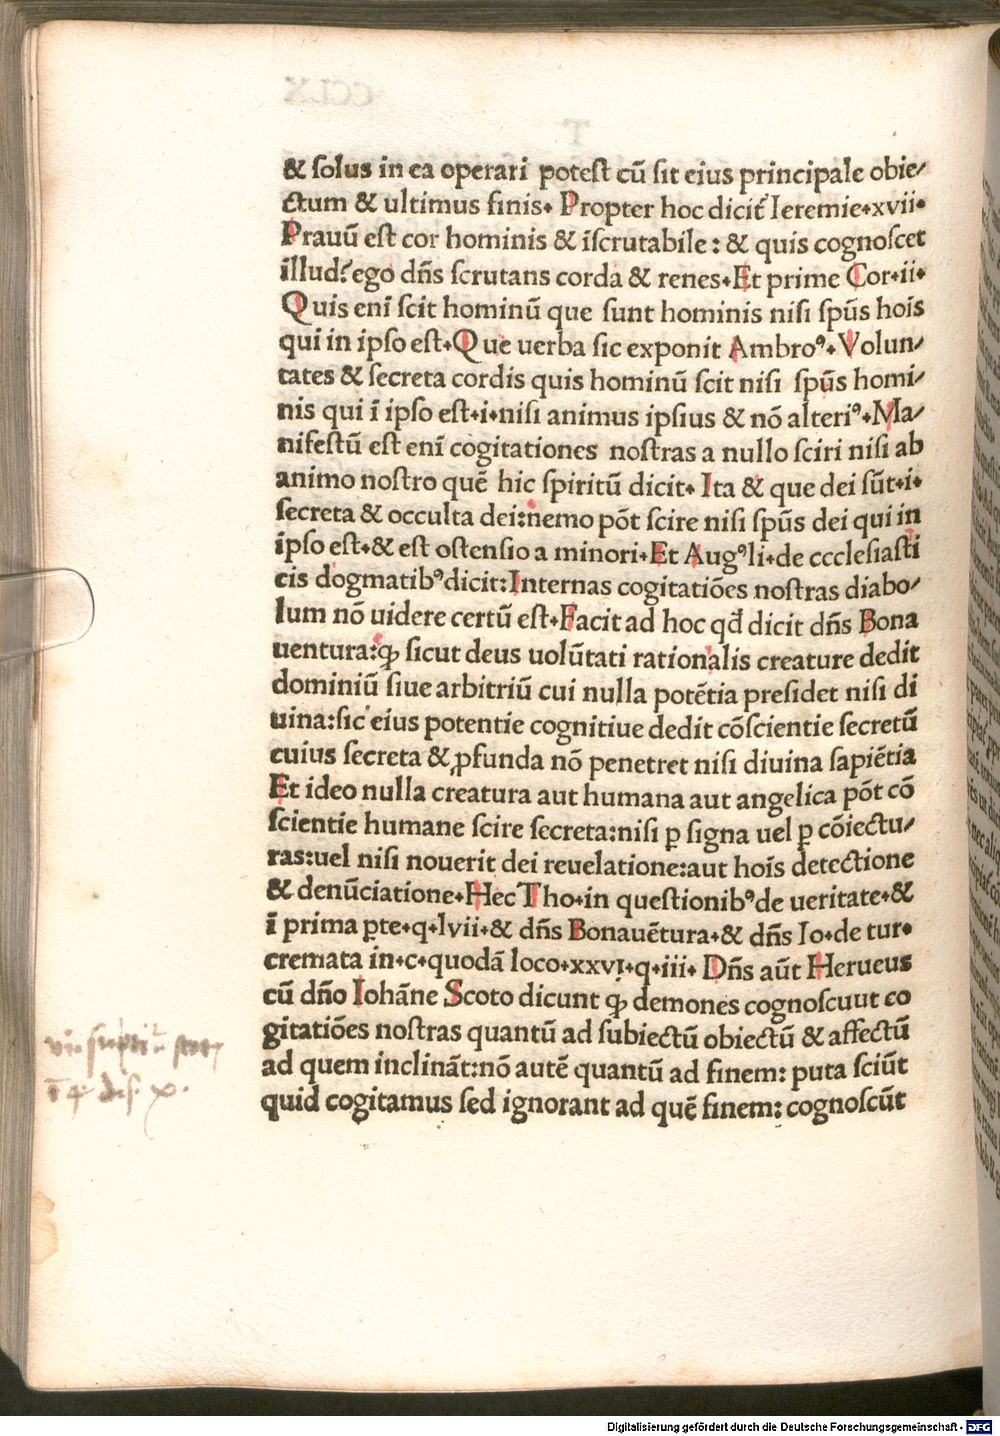 & ſolus in ea operari poteſt cū ſit eius principale obie⸗
ctum & ultimus finis. Propter hoc dicit᷑ Ieremie.xvii.
Prauū eſt cor hominis & iſcrutabile: & quis cognoſcet
illud? ego dn̄s ſcrutans corda & renes. Et prime Cor.ii.
Quis enī ſcit hominū que ſunt hominis niſi ſpūs hoīs
qui in ipſo eſt. Que uerba ſic exponit Ambroꝰ. Volun⸗
tates & ſecreta cordis quis hominū ſcit niſi ſpūs homi⸗
nis qui ī ipſo eſt.i.niſi animus ipſius & nō alteriꝰ. Ma⸗
nifeſtū eſt enī cogitationes noſtras a nullo ſciri niſi ab
animo noſtro quē hic ſpiritū dicit. Ita & que dei ſūt.i.
ſecreta & occulta dei: nemo pōt ſcire niſi ſpūs dei qui in
īpſo eſt. & eſt oſtenſio a minori. Et Augꝰ li. de eccleſiaſti
cis dogmatibꝰ dicit: Internas cogitatiōes noſtras diabo⸗
lum nō uidere certū eſt. Facit ad hoc qd̄ dicit dn̄s Bona
uentura: ꝙ ſicut deus uolūtati rationalis creature dedit
dominiū ſiue arbitriū cui nulla potētia preſidet niſi di
uina: ſic eius potentie cognitiue dedit cōſcientie ſecretū
cuius ſecreta & ꝓfunda nō penetret niſi diuina ſapiētia
Et ideo nulla creatura aut humana aut angelica pōt cō
ſcientie humane ſcire ſecreta: niſi ꝑ ſigna uel ꝑ cōiectu⸗
ras: uel niſi nouerit dei reuelatione: aut hoīs detectione
& denūciatione. Hec Tho. in queſtionibꝰ de ueritate. &
ī prima ꝑte. q. lvii. & dn̄s Bonauētura. & dn̄s Io. de tur.
cremata in .c. quodā loco. xxvi. q. iii. Dn̄s aūt Herueus
cū dn̄o Iohāne Scoto dicunt ꝙ demones cognoſcuut co
gitatiōes noſtras quantū ad ſubiectū obiectū & affectū
ad quem inclināt: nō autē quantū ad finem: puta ſciūt
quid cogitamus ſed ignorant ad quē finem: cognoſcūt
ī 4 diſ. x.
Digitalisierung gefördert durch die Deutsche Forschungsgemeinschaft - DFG